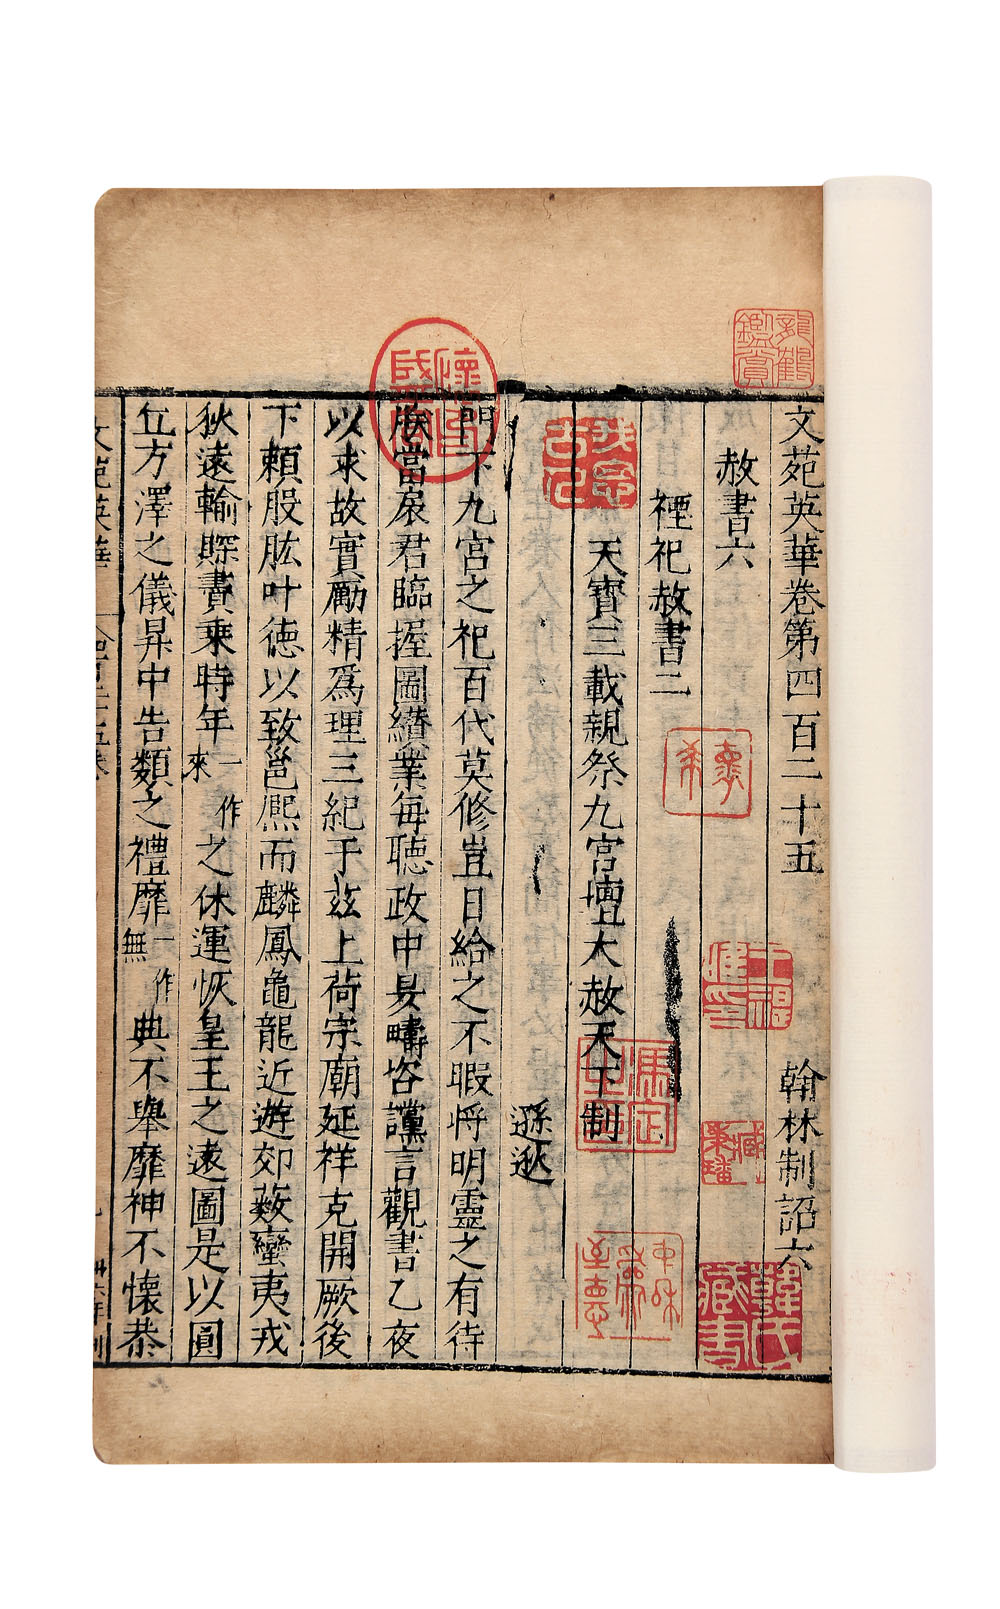 文苑英華卷第四百二十五
翰林制詔六
赦書六
禋祀赦書二
天寶三載親祭九宮壇大赦天下制
遜逖
門下九宮之祀百代莫修豈日給之不暇將明靈之有待
朕當扆君臨握圖纘業每聽政中昃疇咨讜言觀書乙夜
以求故實勵精爲理三紀于兹上荷宗廟延祥克開厥後
下賴股肱叶德以致邕熙而麟鳳龜龍近遊郊薮蠻夷戎
狄遠輸賝賮乘時年一作來之休運恢皇王之遠圖是以圓
丘方澤之儀昇中告類之禮靡一作無典不舉靡神不懷恭
龍鶴鑑賞
韓氏藏書